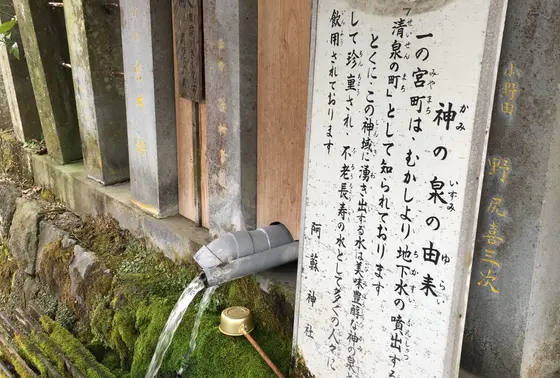 小野田 野尻喜三次
神の泉の由来
一の宮町は、むかしより地下水の噴出する
「清泉の町」として知られております
とくに、この神域に湧き出する水は美味豊醇な神の泉
して珍重され、不老長寿の水として多くの人々に
飲用されております
阿蘇神社